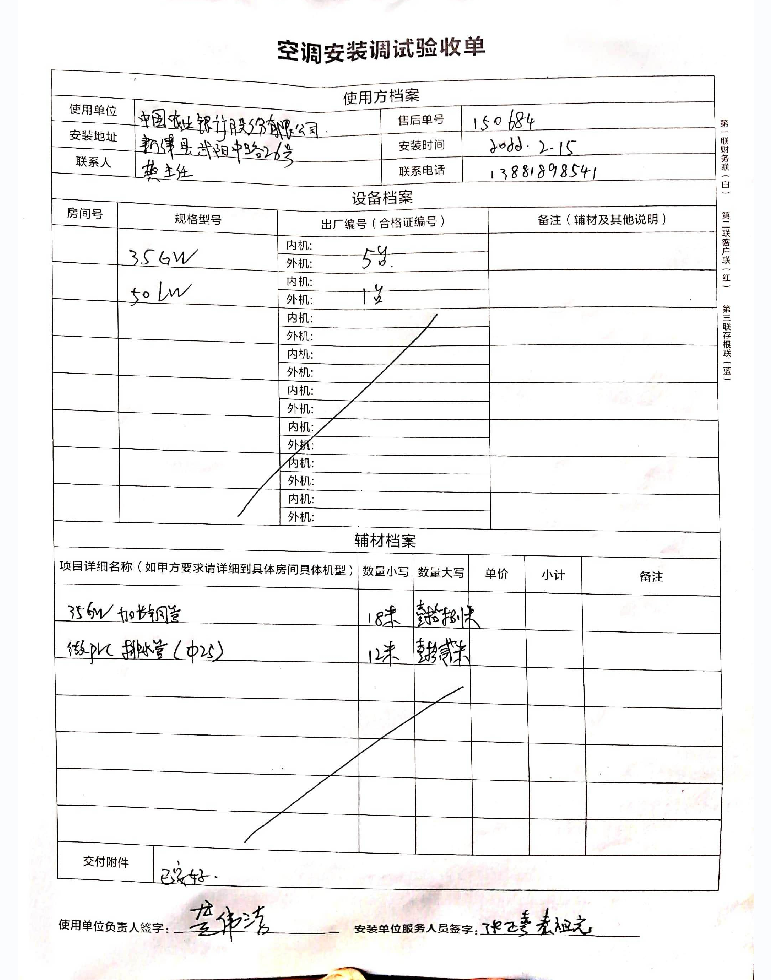 空调安装调试验收单
使用方档案
使用单位 中国农业银行股份有限公司 售后单号 150684
安装地址 新津县武阳中路26号 安装时间 2022.2.15
联系人 主任 联系电话 13881898541
设备档案
房间号 规格型号 出厂编号（合格证编号） 备注（辅材及其他说明）
35GW 内机:
外机: 5台
50LW 内机:
外机: 1台
内机:
外机:
内机:
外机:
内机:
外机:
内机:
外机:
内机:
外机:
内机:
外机:
辅材档案
项目详细名称（如甲方要求请详细到具体房间具体机型） 数量小写 数量大写 单价 小计 备注
35GW 加长铜管 18米 壹拾捌米
做pvc 排水管（Φ25） 12米 壹拾贰米
交付附件 已安好.
使用单位负责人签字: 安装单位服务人员签字:
第一联财务联（白）
第二联客户联（红）
第三联存根联（蓝）